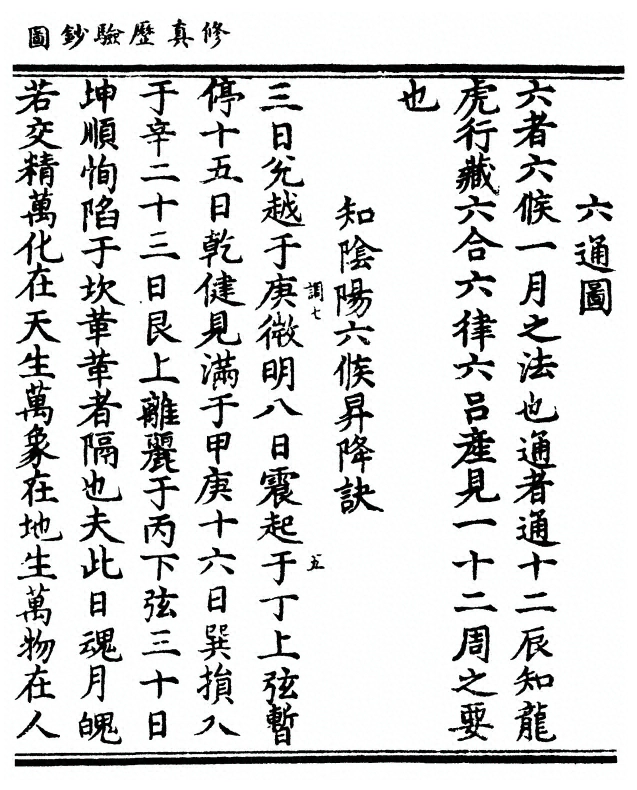 修真歷驗鈔圖
六通圖
六者六候一月之法也通者通十二辰知龍
虎行藏六合六律六呂產見一十二周之要
也
知陰陽六候昇降訣
三日兊越于庚微明八日震起于丁上弦暫
調七
五
停十五日乾健見滿于甲庚十六日巽損入
于辛二十三日艮上離麗于丙下弦三十日
坤順恂陷于坎葷葷者隔也夫此日魂月魄
若交精萬化在天生萬象在地生萬物在人